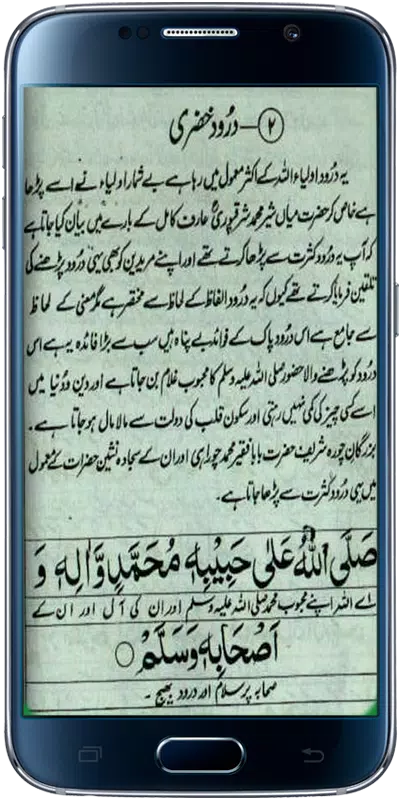 ۲ — درُود خضری
یہ درُود اولیاء اللہ کے اکثر معمول میں رہا ہے بے شمار اولیاء نے اسے پڑھا
ہے خاص کر حضرت میاں شیر محمد شرقپوریؒ عارف کامل کے بارے میں بیان کیا جاتا ہے
کہ آپ یہ درُود کثرت سے پڑھا کرتے تھے اور اپنے مریدین کو بھی یہی درُود پڑھنے کی
تلقین فرمایا کرتے تھے کیوں کہ یہ درُود الفاظ کے لحاظ سے مختصر ہے مگر معنی کے لحاظ
سے جامع ہے اس درُود پاک کے فوائد بے پناہ ہیں سب سے بڑا فائدہ یہ ہے اس
درُود کو پڑھنے والا حضور صلی اللہ علیہ وسلم کا محبوب غلام بن جاتا ہے اور دین و دُنیا میں
اُسے کسی چیز کی کمی نہیں رہتی اور سکون قلب کی دولت سے مالا مال ہو جاتا ہے۔
بزرگانِ چورہ شریف حضرت بابا فقیر محمد چوراہی اور ان کے سجادہ نشین حضرات کے معمول
میں یہی درُود کثرت سے پڑھا جاتا ہے۔
صَلَّی اللّٰہُ عَلٰی حَبِیْبِہٖ مُحَمَّدٍ وَّاٰلِہٖ وَ
اے اللہ اپنے محبوب محمد صلی اللہ علیہ وسلم اور ان کی آل اور ان کے
اَصْحَابِہٖ وَسَلَّمْ ○
صحابہ پر سلام اور درود بھیج ۔